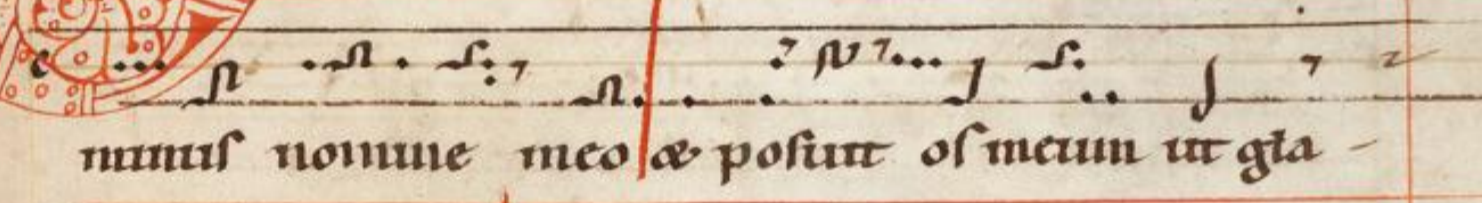 minis nomine meo & posuit os meum ut gla-